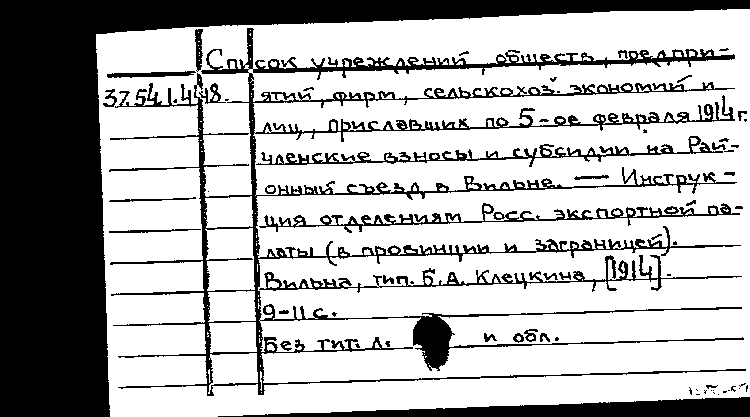 Список учреждений, обществ, предпри-
37.54.1.448. ятий, фирм, сельскохоз. экономий и
лиц, приславших по 5-ое февраля 1914 г.
членские взносы и субсидии на Рай-
онный съезд в Вильне. — Инструк-
ция отделениям Росс. экспортной па-
латы (в провинции и заграницей).
Вильна, тип. Б.А. Клецкина, [1914].
9-11 с.
Без тит. л. и обл.